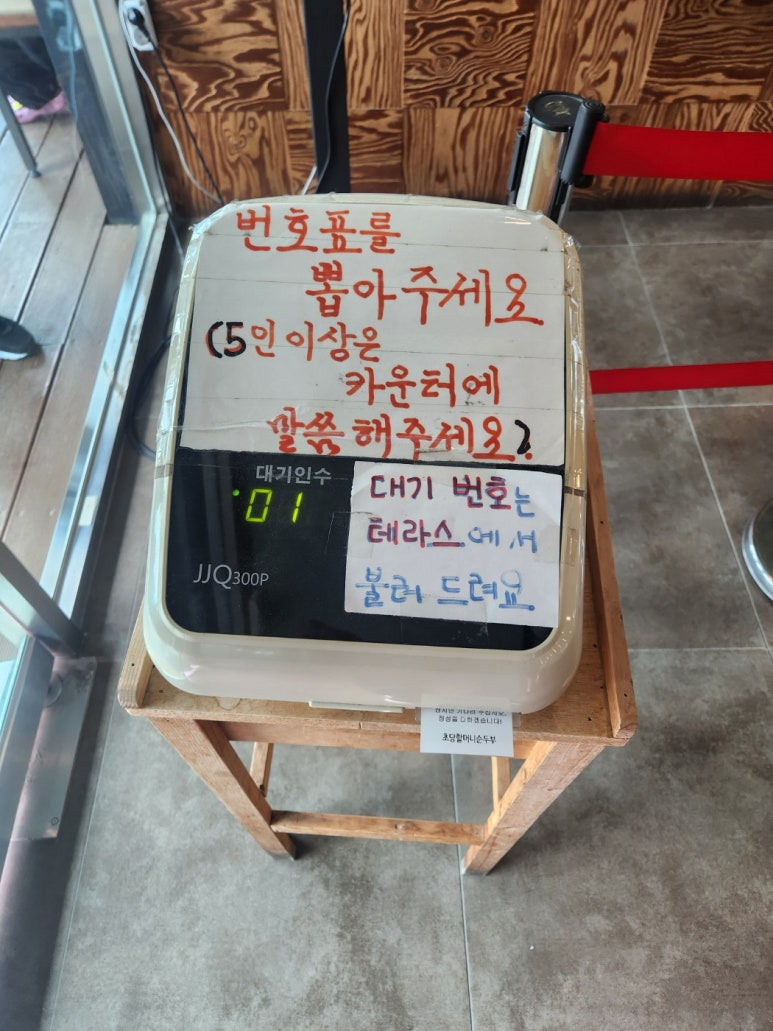 번호표를
뽑아주세요
(5인이상은
카운터에
말씀해주세요)
대기인수
01
JJQ300P
대기 번호는
테라스에서
불러 드려요
정성을 다하겠습니다!
초당할머니순두부